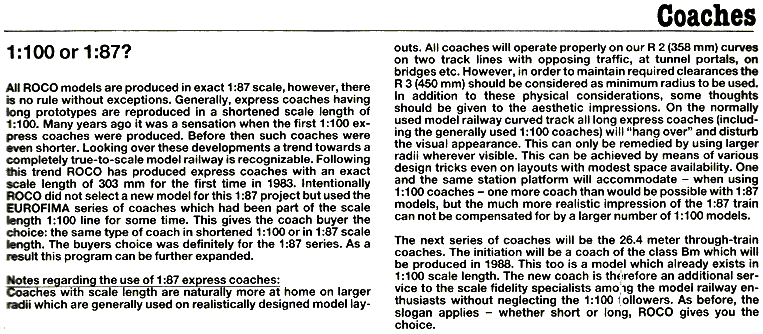 Coaches
1:100 or 1:87?
All ROCO models are produced in exact 1:87 scale, however, there
is no rule without exceptions. Generally, express coaches having
long prototypes are reproduced in a shortened scale length of
1:100. Many years ago it was a sensation when the first 1:100 ex-
press coaches were produced. Before then such coaches were
even shorter. Looking over these developments a trend towards a
completely true-to-scale model railway is recognizable. Following
this trend ROCO has produced express coaches with an exact
scale length of 303 mm for the first time in 1983. Intentionally
ROCO did not select a new model for this 1:87 project but used the
EUROFIMA series of coaches which had been part of the scale
length 1:100 line for some time. This gives the coach buyer the
choice: the same type of coach in shortened 1:100 or in 1:87 scale
length. The buyers choice was definitely for the 1:87 series. As a
result this program can be further expanded.
Notes regarding the use of 1:87 express coaches:
Coaches with scale length are naturally more at home on larger
radii which are generally used on realistically designed model lay-
outs. All coaches will operate properly on our R 2 (358 mm) curves
on two track lines with opposing traffic, at tunnel portals, on
bridges etc. However, in order to maintain required clearances the
R 3 (450 mm) should be considered as minimum radius to be used.
In addition to these physical considerations, some thoughts
should be given to the aesthetic impressions. On the normally
used model railway curved track all long express coaches (includ-
ing the generally used 1:100 coaches) will "hang over" and disturb
the visual appearance. This can only be remedied by using larger
radii wherever visible. This can be achieved by means of various
design tricks even on layouts with modest space availability. One
and the same station platform will accommodate – when using
1:100 coaches – one more coach than would be possible with 1:87
models, but the much more realistic impression of the 1:87 train
can not be compensated for by a larger number of 1:100 models.
The next series of coaches will be the 26.4 meter through-train
coaches. The initiation will be a coach of the class Bm which will
be produced in 1988. This too is a model which already exists in
1:100 scale length. The new coach is therefore an additional ser-
vice to the scale fidelity specialists among the model railway en-
thusiasts without neglecting the 1:100 followers. As before, the
slogan applies – whether short or long, ROCO gives you the
choice.